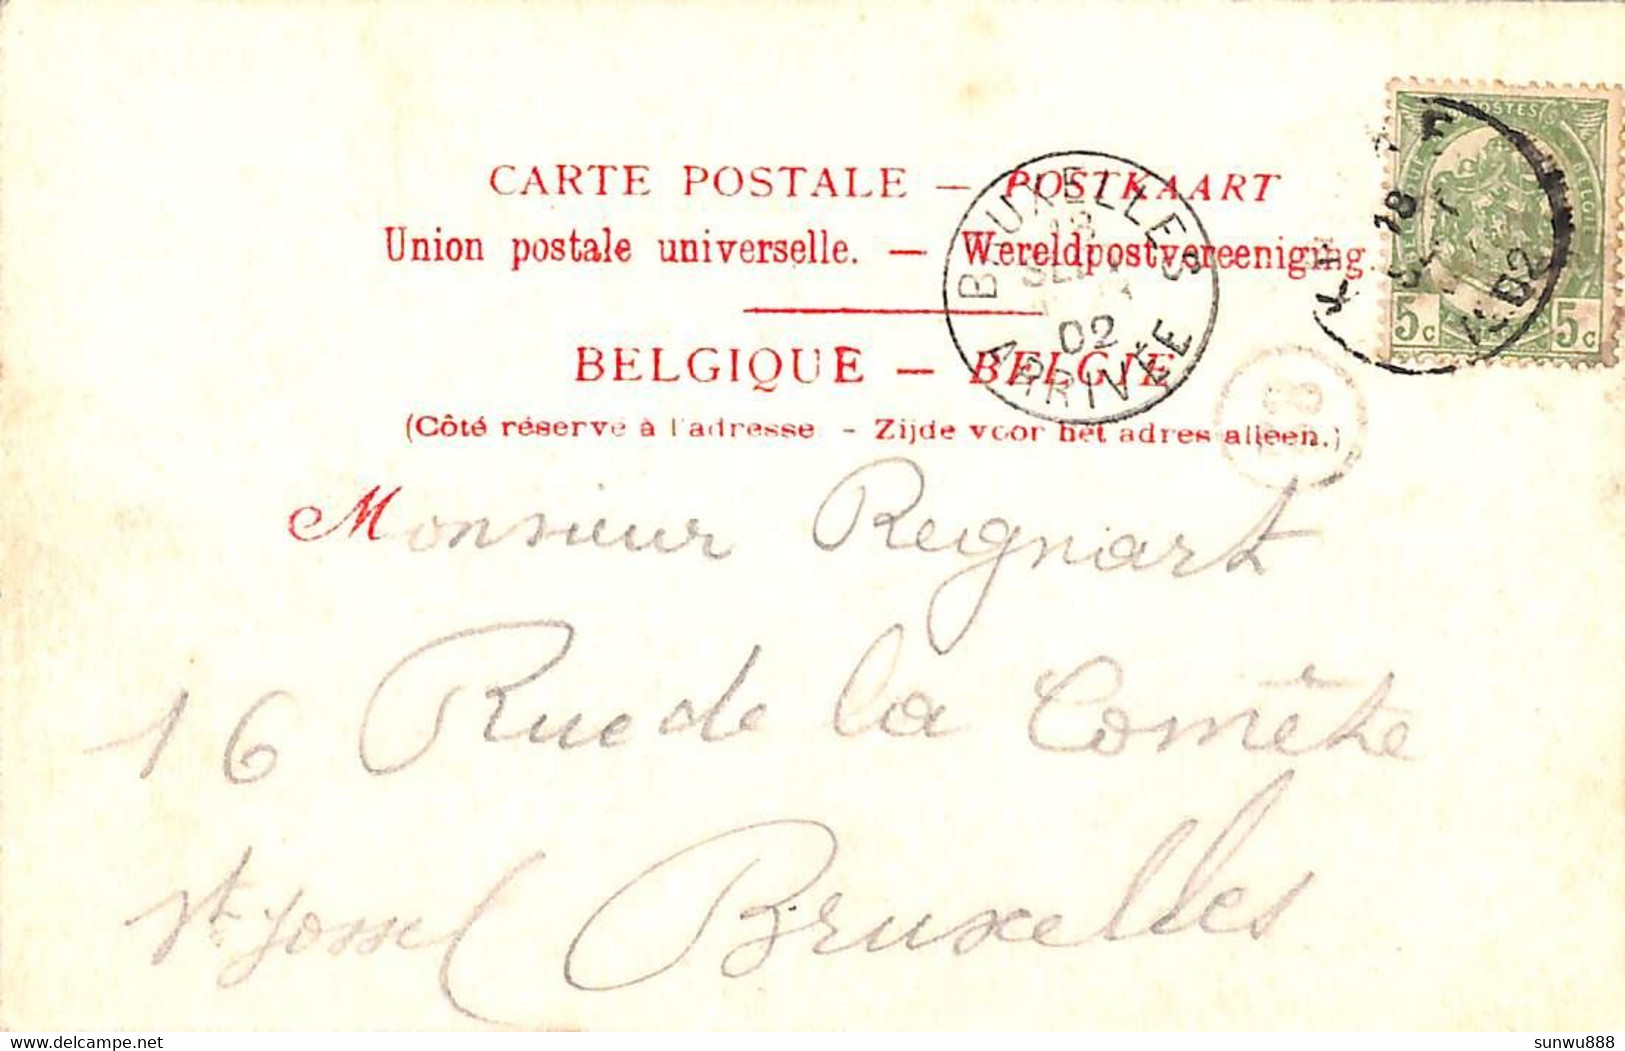 CARTE POSTALE — POSTKAART
Union postale universelle. — Wereldpostvereeniging
BELGIQUE — BELGIE
(Côté réservé à l'adresse - Zijde voor het adres alleen.)
BRUXELLES
18
SEPT
02
ARRIVÉE
POSTES
BELGIQUE
BELGIË
5c 5c
18
02
Monsieur Regnart
16 Rue de la Comète
St Josse (Bruxelles
www.delcampe.net
sunwu888